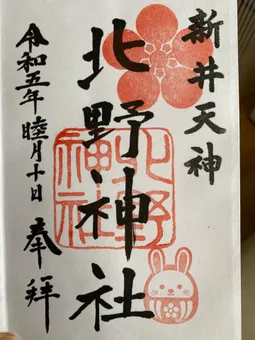 新井天神
北野神社
北野
神社
令和五年 睦月十日 奉拝